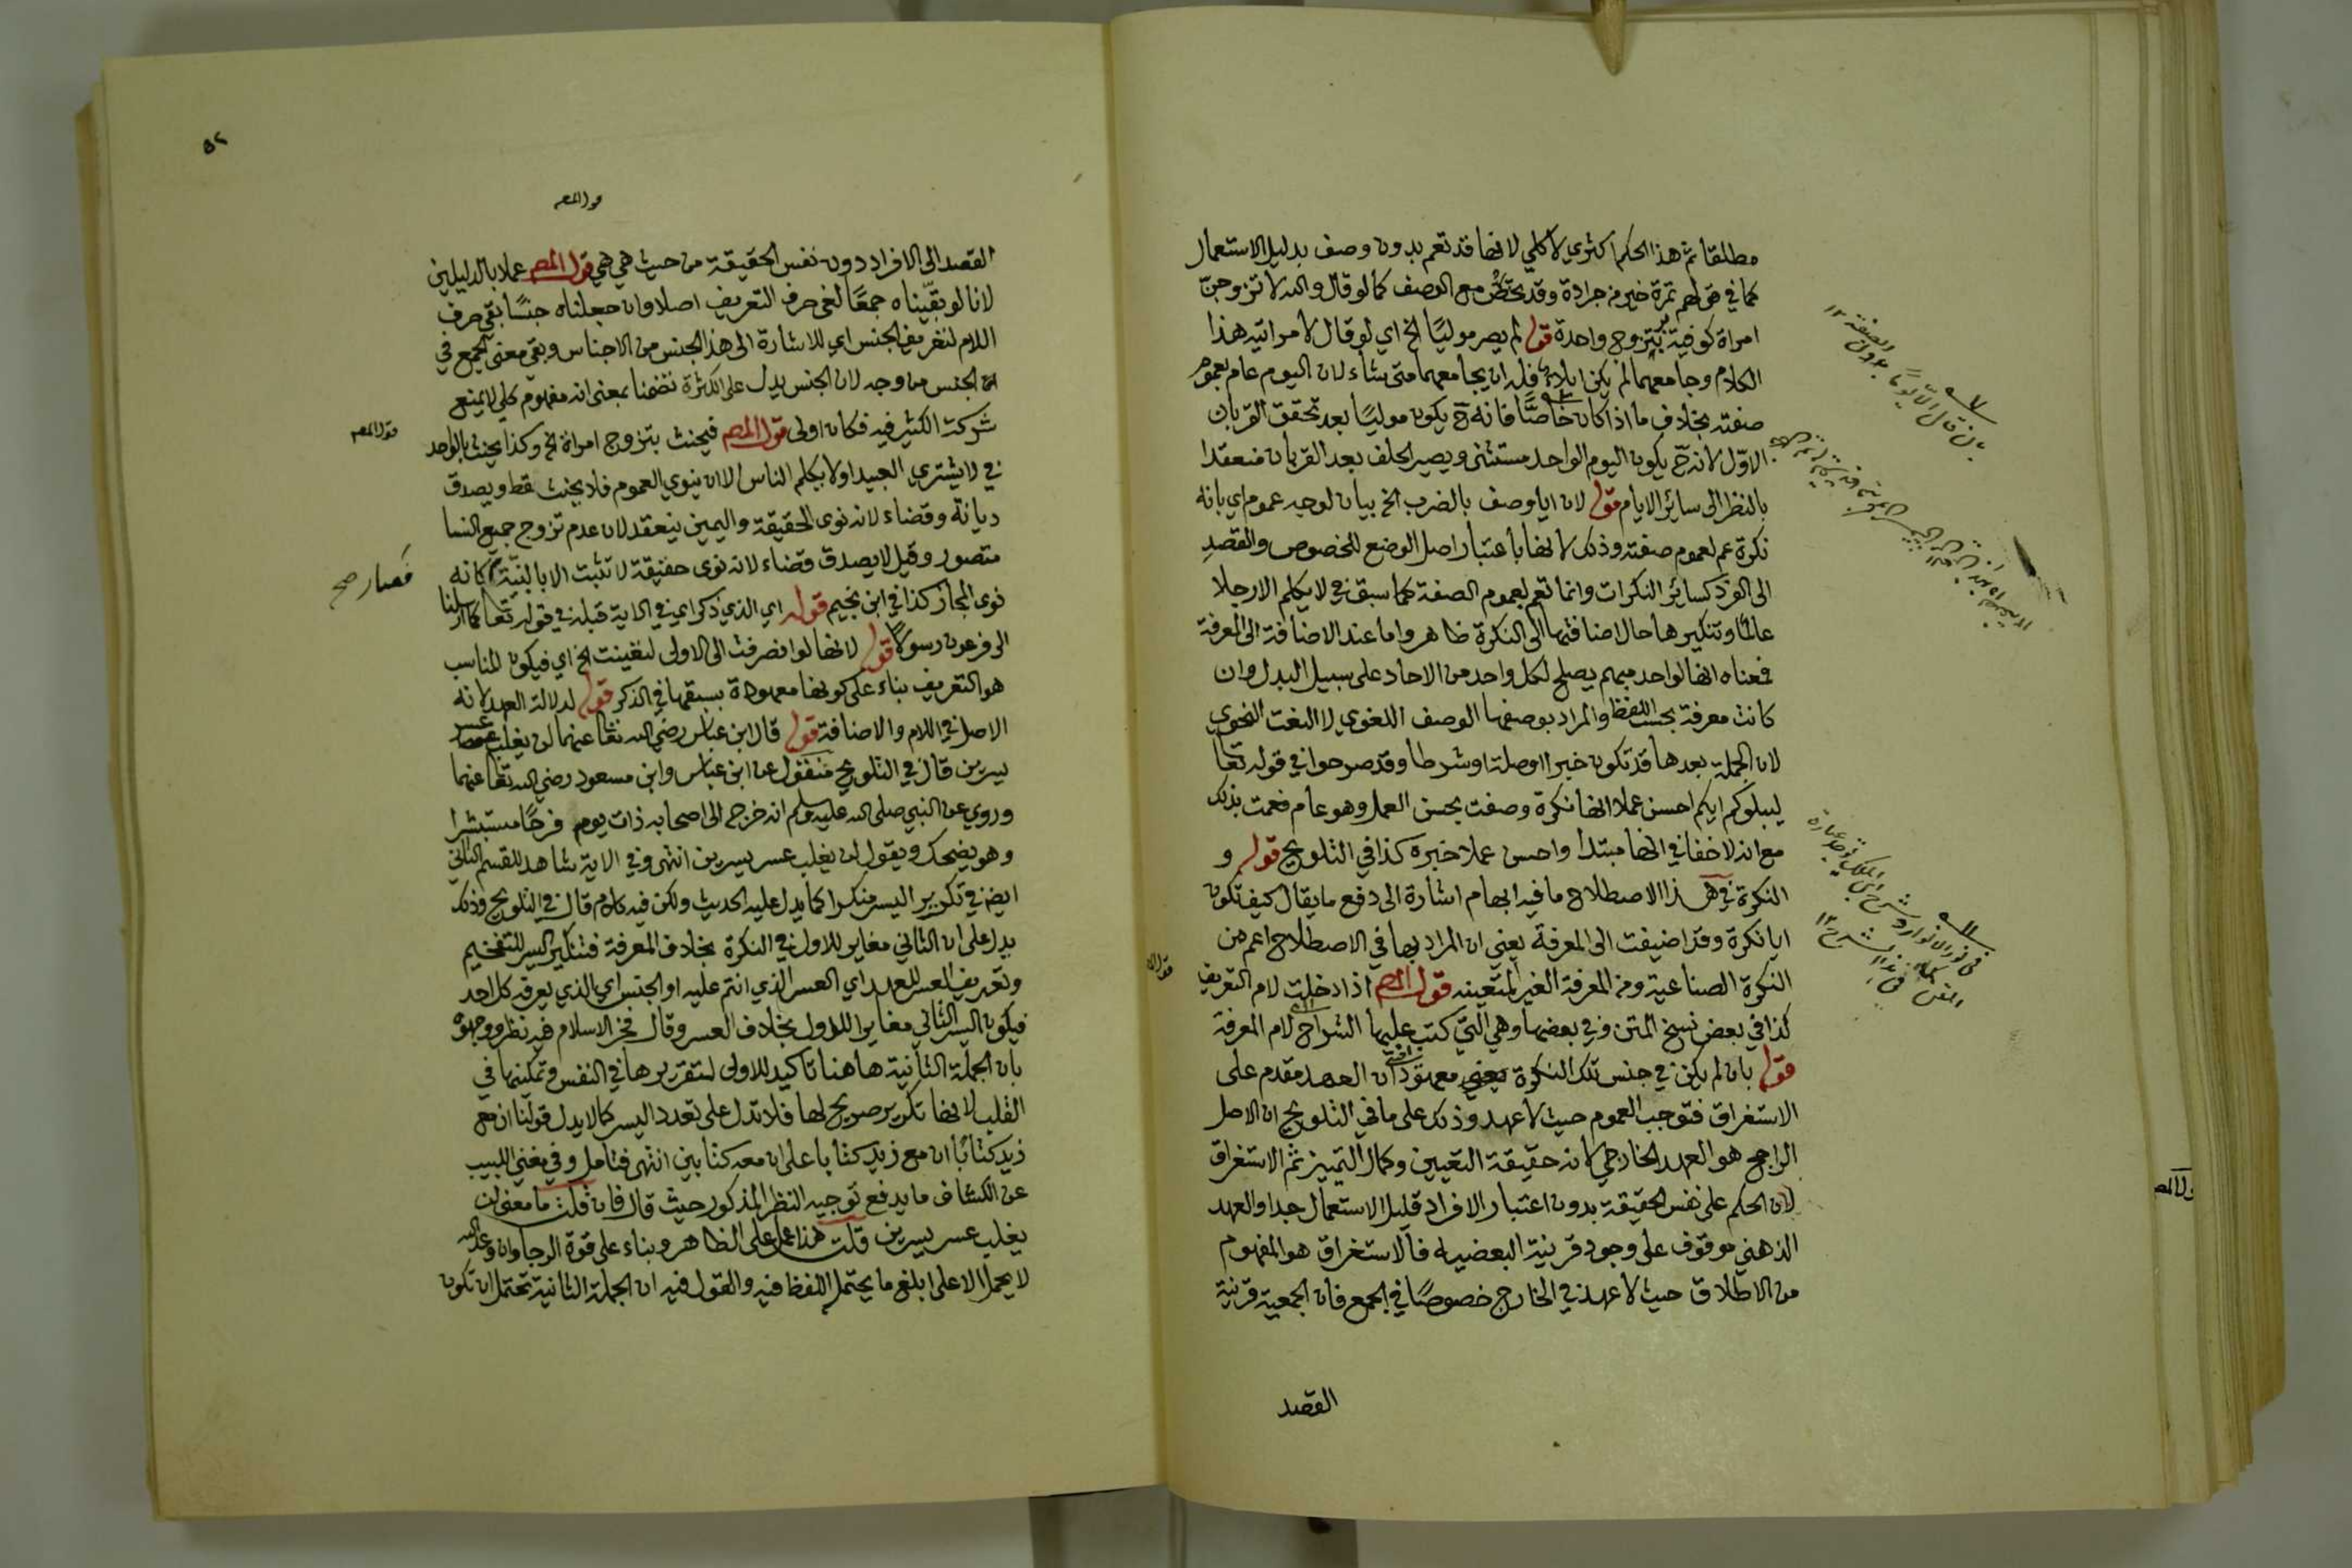 مطلقا ثم هذا الحكم اكثري لا كلي لانها قد تعم بدون وصف بدليل الاستعمال
كما في قولهم تمرة خير من جرادة وقد تختص مع الوصف كما لو قال والله لا تزوجن
امراة كوفية بتزوج واحدة قوله لم يصر موليًا الخ اي لو قال لامراتيه هذا
الكلام وجامعهما لم يكن ايلاء فله ان يجامعهما متى شاء لان اليوم عام بعموم
صفته بخلاف ما اذا كان خاصًّا فانه ح يكون موليًا بعد تحقق القربان
الاول لانه ح يكون اليوم الواحد مستثنى ويصير الحلف بعد القربان منعقدا
بالنظر الى سائر الايام قوله لان ايا وصف بالضرب الخ بيان لوجه عموم اي بانه
نكرة عم لعموم صفته وذلك لانها باعتبار اصل الوضع للخصوص والقصد
الى الفرد كسائر النكرات وانما تعم لعموم الصفة كما سبق في لا يكلم الا رجلا
عالمًا وتنكيرها حال اضافتها الى النكرة ظاهر واما عند الاضافة الى المعرفة
فمعناه انها لواحد مبهم يصلح لكل واحد من الاحاد على سبيل البدل وان
كانت معرفة بحسب اللفظ والمراد بوصفها الوصف اللغوي لا النعت النحوي
لان الجملة بعدها قد تكون خبرا او صلة او شرطا وقد صرحوا في قوله تعا
ليبلوكم ايكم احسن عملا انها نكرة وصفت بحسن العمل وهو عام فعمت بذلك
مع انه لا خفا في انها مبتدا واحسن عملا خبره كذا في التلويح قوله و
النكرة في هذا الاصطلاح ما فيه ابهام اشارة الى دفع ما يقال كيف تكون
ايا نكرة وقد اضيفت الى المعرفة يعني ان المراد بها في الاصطلاح اعم من
النكرة الصناعية ومن المعرفة الغير المتعينه قول المص اذا دخلت لام التعريف
كذا في بعض نسخ المتن وفي بعضها وهي التي كتب عليها الشراح لام المعرفة
قوله بان لم يكن في جنس تلك النكرة يعني معهود ان العهد مقدم على
الاستغراق فتوجب العموم حيث لا عهد وذلك على ما في التلويح ان الاصل
الراجح هو العهد الخارجي لانه حقيقة التعيين وكمال التمييز ثم الاستغراق
لان الحكم على نفس الحقيقة بدون اعتبار الافراد قليل الاستعمال جدا والعهد
الذهني موقوف على وجود قرينة البعضيه فالاستغراق هو المفهوم
من الاطلاق حيث لا عهد في الخارج خصوصًا في الجمع فان الجمعية قرينة
القصد
بان قال الا يومًا بدون
الصفة ١٢
في نور الانوار وشرح ابن الملك بوجد عبارة
٥٢
قول المص
القصد الى الافراد دون نفس الحقيقة من حيث هي هي قول المص عملا بالدليلين
لانا لو بقّيناه جمعًا لغى حرف التعريف اصلا وان جعلناه جنسًا بقي حرف
اللام لتعريف الجنس اي للاشارة الى هذا الجنس من الاجناس وبقي معنى الجمع في
الجنس من وجه لان الجنس يدل على الكثرة تضمنا بمعنى انه مفهوم كلي لا يمنع
شركة الكثير فيه فكان اولى قول المص فيحنث بتزوج امراة الخ وكذا يحنث بالواحد
في لا يشتري العبيد او لا يكلم الناس الا ان ينوي العموم فلا يحنث قط ويصدق
ديانة وقضاء لانه نوى الحقيقة واليمين ينعقد لان عدم تزوج جميع النسا
متصور وقيل لا يصدق قضاء لانه نوى حقيقة لا تثبت الا بالنية كانه
نوى المجاز كذا في ابن نجيم قوله اي الذي ذكر اي في الاية قبله في قوله تعا كما ارسلنا
الى فرعون رسولًا قوله لانها لو انصرفت الى الاولى لتعينت الخ اي فيكون المناسب
هو التعريف بناء على كونها معهودة بسبقها في الذكر قوله لدلالة العهد لانه
الاصل في اللام والاضافة قوله قال ابن عباس رضي الله تعا عنهما لن يغلب عسر
يسرين قال في التلويح منقول عن ابن عباس وابن مسعود رضي الله تعا عنهما
وروي عن النبي صلى الله عليه وسلم انه خرج الى اصحابه ذات يوم فرحًا مستبشرا
وهو يضحك ويقول لن يغلب عسر يسرين انتهى وفي الاية شاهد للقسم الثاني
ايض في تكرير اليسر منكرا كما يدل عليه الحديث ولكن فيه كلام قال في التلويح وذلك
يدل على ان الثاني مغاير للاول في النكرة بخلاف المعرفة فتنكير اليسر للتفخيم
وتعريف العسر للعهد اي العسر الذي انتم عليه او الجنس اي الذي يعرفه كل احد
فيكون اليسر الثاني مغايرا للاول بخلاف العسر وقال فخر الاسلام فيه نظر ووجهوه
بان الجملة الثانية هاهنا تاكيد للاولى لتقريرها في النفس وتمكينها في
القلب لانها تكرير صريح لها فلا تدل على تعدد اليسر كما لا يدل قولنا ان مع
زيد كتابًا ان مع زيد كتابا على ان معه كتابين انتهى فتامل وفي مغني اللبيب
عن الكشاف ما يدفع توجيه النظر المذكور حيث قال فان قلت ما معنى لن
يغلب عسر يسرين قلت هذا عمل على الظاهر وبناء على قوة الرجا وان وعد الله
لا يحمل الا على ابلغ ما يحتمل اللفظ فيه والقول فيه ان الجملة الثانية تحتمل ان تكون
قول المص
فصار صح